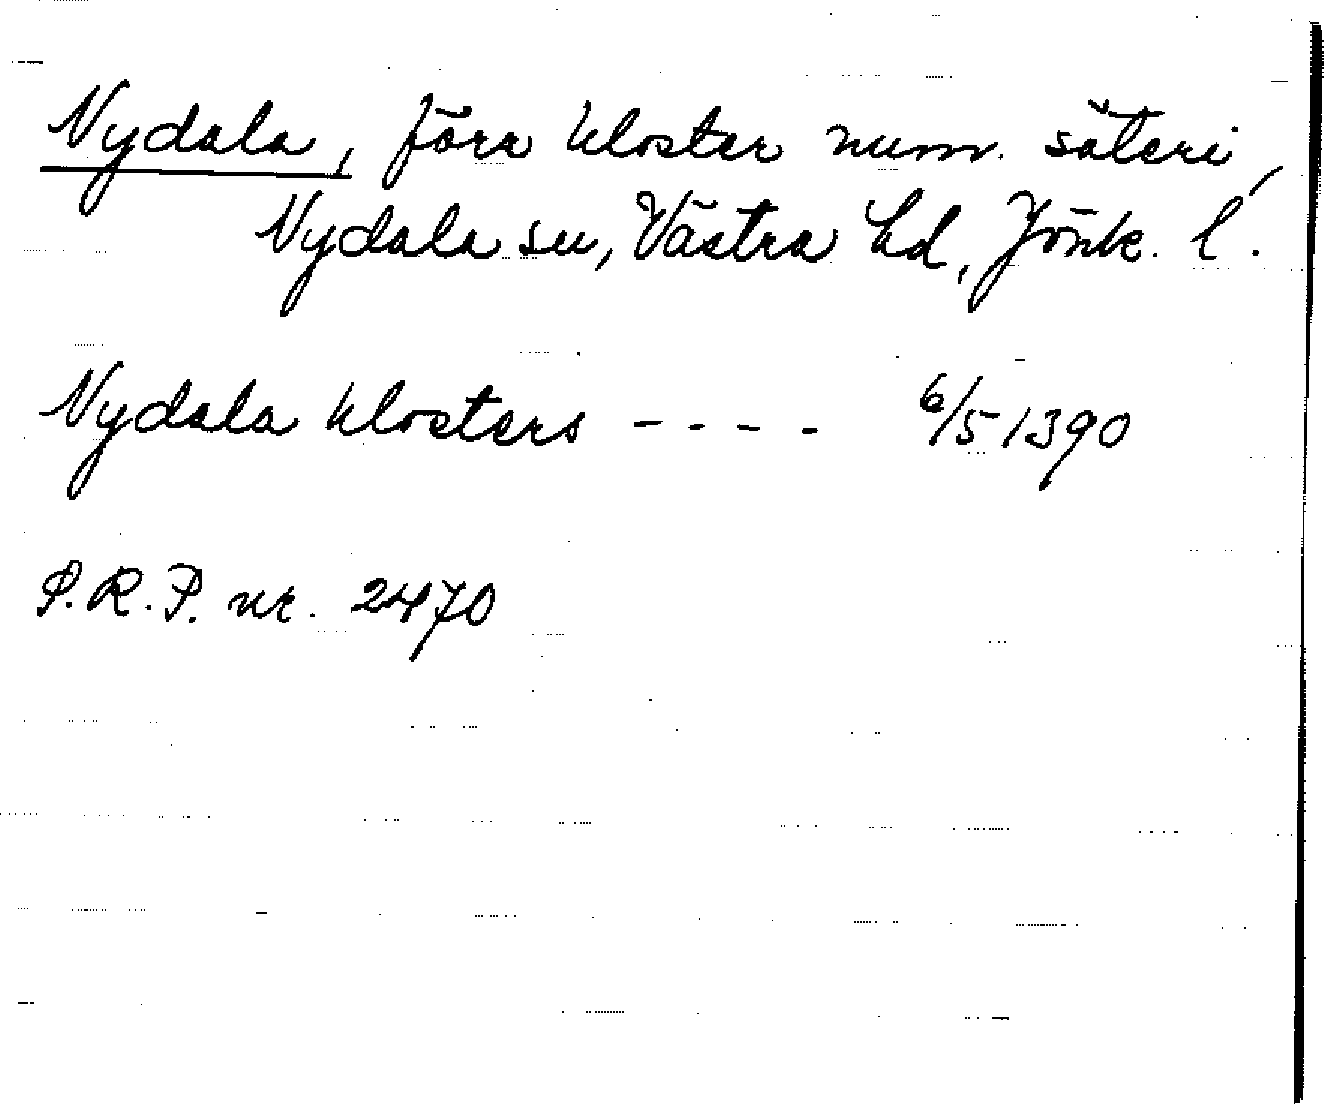 Nydala, förr kloster num. säteri,
Nydala sn, Västra hd, Jönk. l.
Nydala klosters - - - - 6/5 1390
P.R.P. nr. 2470